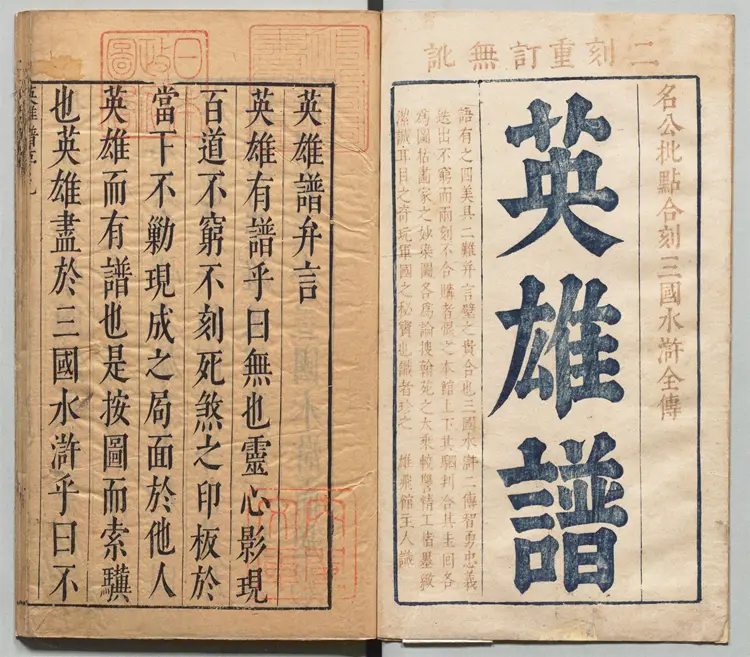 二刻重訂無訛
名公批點合刻三國水滸全傳
英雄譜
語有之四美具二難并言璧之貴合也三國水滸二傳智勇忠義
迭出不窮而兩刻不合購者恨之本館上下其駟判合其圭回各
爲圖括畫家之妙染圖各爲論搜翰苑之大乘較讐精工楮墨緻
潔誠耳目之奇玩軍國之秘寶也識者珍之 雄飛館主人識
英雄譜弁言
英雄有譜乎曰無也靈心影現
百道不窮不刻死煞之印板於
當干不勦現成之局面於他人
英雄而有譜也是按圖而索驥
也英雄盡於三國水滸乎曰不